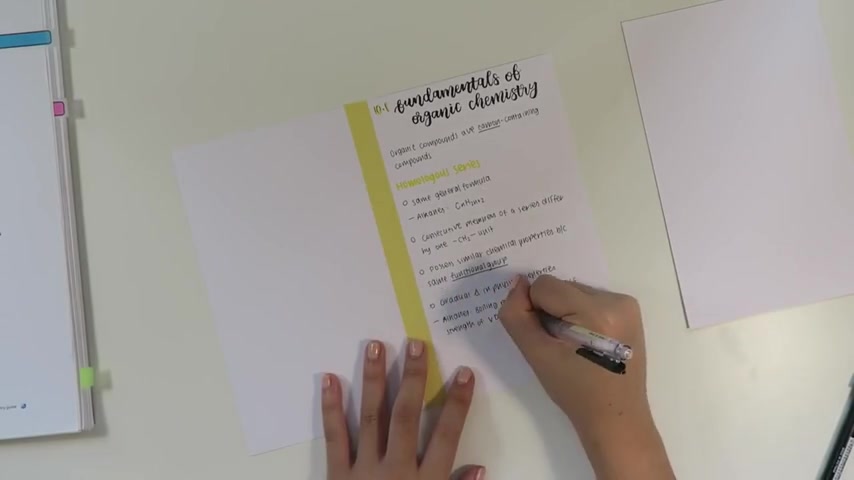 10.1 fundamentals of
organic chemistry
Organic compounds are carbon-containing
compounds
Homologous series
○ same general formula
- Alkanes: CnH2n+2
○ Consecutive members of a series differ
by one -CH2- unit
○ Possess similar chemical properties b/c
same functional group
○ Gradual Δ in properties
- Alkanes: Boiling
strength of